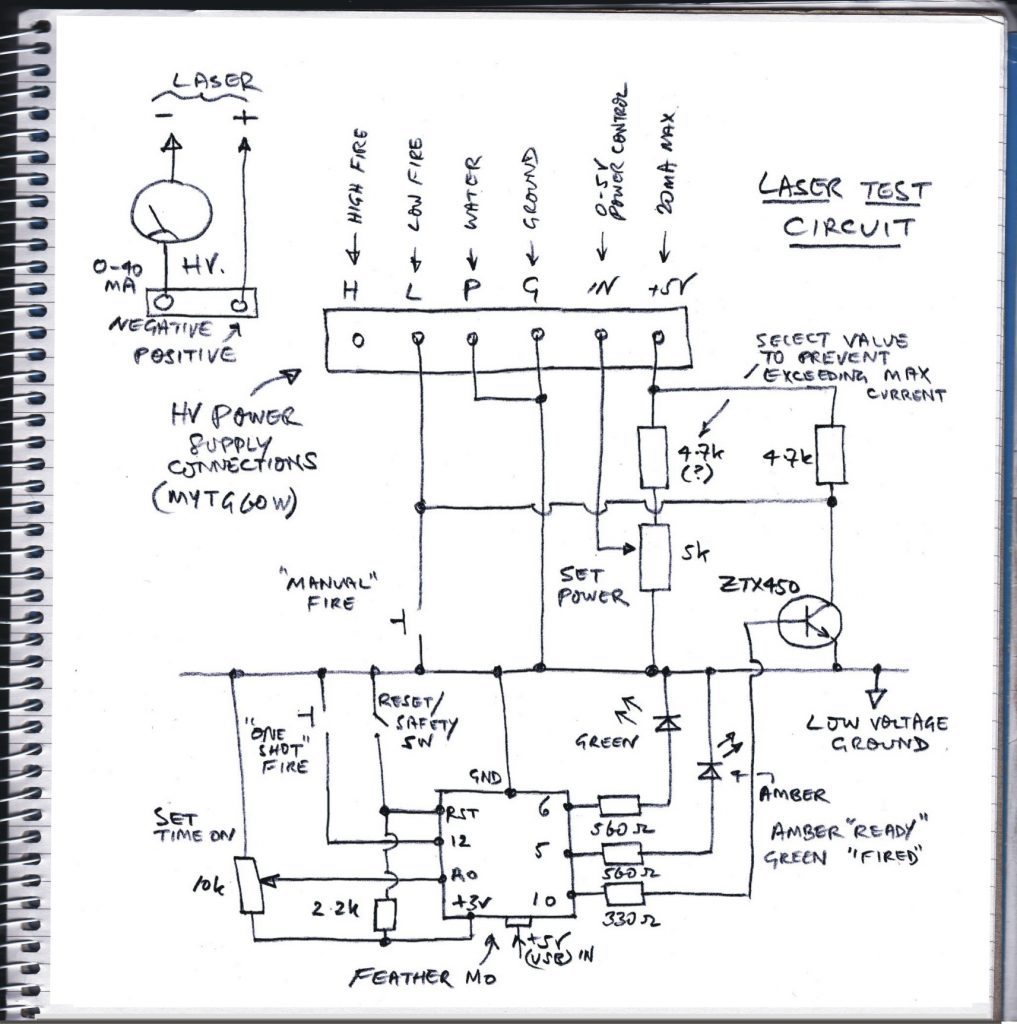 LASER
-
+
0-40
MA
HV.
NEGATIVE
POSITIVE
HIGH FIRE
LOW FIRE
WATER
GROUND
0-5V
POWER CONTROL
20MA MAX
H
L
P
G
IN
+5V
LASER TEST
CIRCUIT
HV POWER
SUPPLY
CONNECTIONS
(MYTG60W)
SELECT VALUE
TO PREVENT
EXCEEDING MAX
CURRENT
4.7k
(?)
4.7k
5k
SET
POWER
ZTX450
"MANUAL"
FIRE
LOW VOLTAGE
GROUND
"ONE
SHOT"
FIRE
RESET/
SAFETY
SW
GREEN
AMBER
AMBER "READY"
GREEN "FIRED"
SET
TIME ON
10k
2.2k
GND
RST
12
A0
+3V
6
5
10
560Ω
560Ω
330Ω
+5V
(USB) IN
FEATHER M0